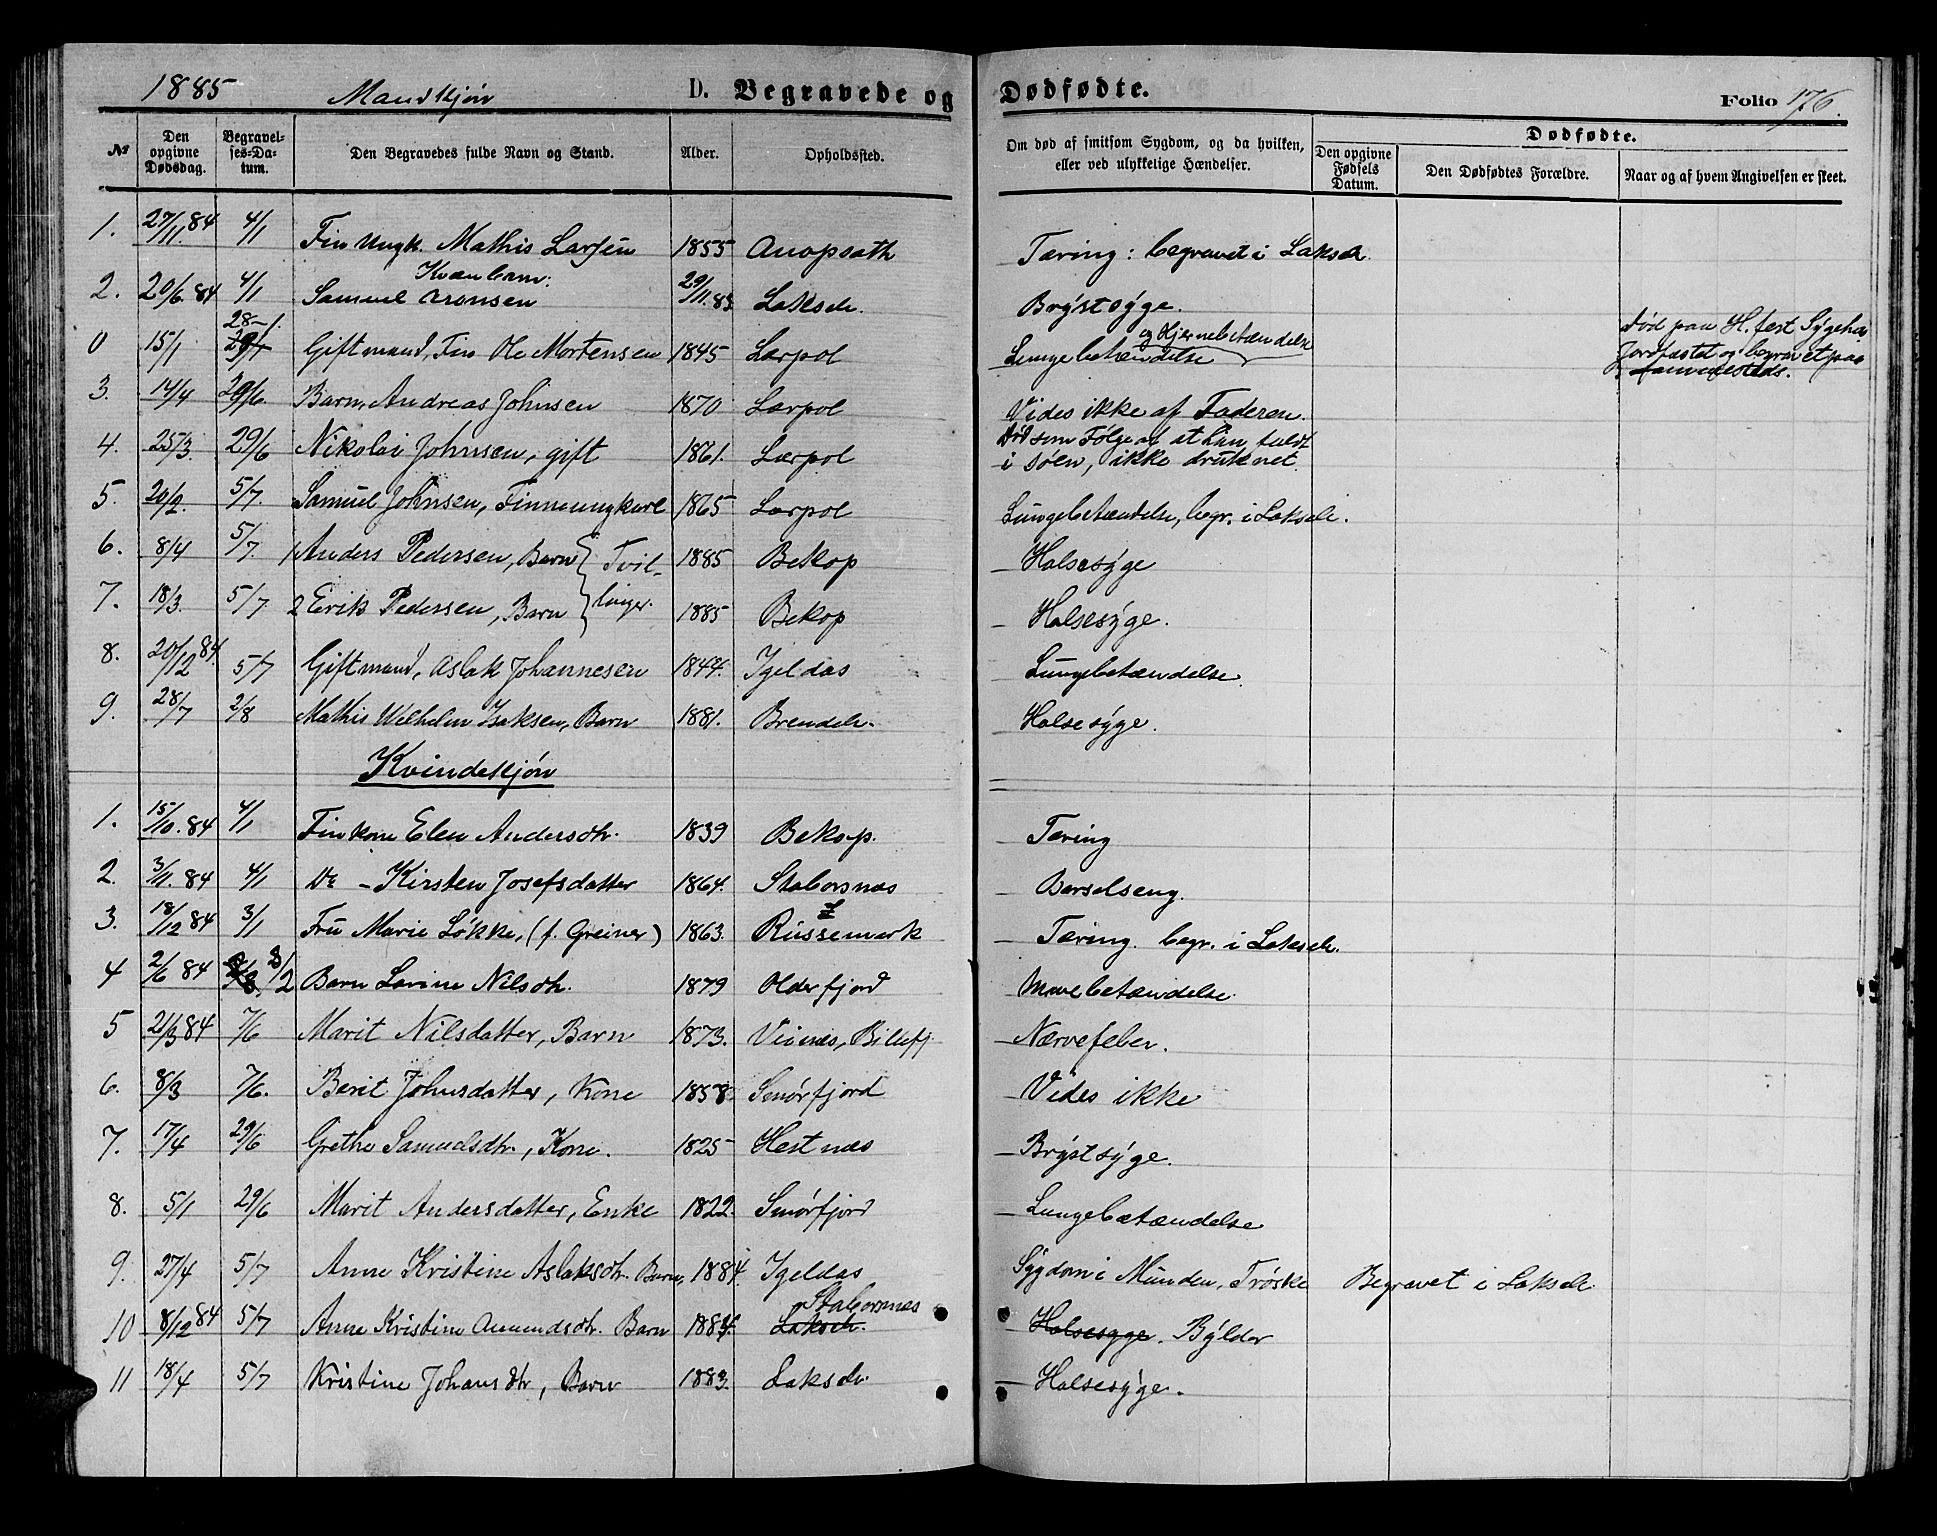 1885 Mandkjøn D. Begravede og Dødfødte. Folio 176.
№ Den opgivne Dødsdag. Begravelses-Datum. Den Begravedes fulde Navn og Stand. Alder. Opholdssted. Om død af smitsom Sygdom, og da hvilken, eller ved ulykkelige Hændelser. Dødfødte. Den opgivne Fødsels Datum. Den Dødfødtes Forældre. Naar og af hvem Angivelsen er skeet.
1. 27/11.84 4/1 Fin Ungk. Mathis Larsen 1855 Anopsath Tæring: begravet i Lakselv
2. 20/6.84 4/1 Kvænbarn: Samuel Aronsen 29/11.83 Lakselv. Brÿstsÿge.
0 15/1 28-1. 29/1 Giftmand, Fin Ole Mortensen 1845 Lærpol Lungebetændelse og Hjernebetændelse Død paa H.fest Sÿgehus Jordfæstet og begravet paa sammesteds.
3. 14/4 29/6. Barn, Andreas Johnsen 1870 Lærpol Vides ikke af Faderen.
4. 25/3. 29/6 Nikolai Johnsen, gift 1861. Lærpol Død som Følge af at han faldt i søen, ikke druknet.
5. 20/2. 5/7. Samuel Johnsen, Finneungkarl 1865 Lærpol Lungebetændelse, begr. i Lakselv.
6. 8/4 5/7. 1 Anders Pedersen, Barn } Tvil- 1885 Bekop Halsesÿge
7. 18/3. 5/7 2 Erik Pedersen, Barn } linger. 1885 Bekop Halsesÿge.
8. 20/12 84. 5/7 Giftmand, Aslak Johannesen 1844. Igeldas Lungebetændelse.
9. 28/7 2/8 Mathis Wilhelm Isaksen, Barn 1881. Brendelv. Halsesÿge.
Kvindekjøn
1. 15/10.84 4/1 Finkone Elen Andersdtr. 1839 Bekop. Tæring
2. 3/11.84 4/1 Do - Kirsten Josefsdatter 1864. Staborsnæs Barselseng.
3. 18/12 84 3/1 Fru Marie Løkke, (f. Greiner) 1863. Russemark Tæring. begr. i Lakselv.
4 2/6 84 8/2 Barn Lavine Nilsdtr. 1879 Olderfjord Mavebetændelse.
5 21/3 84 7/6 Marit Nilsdatter, Barn 1873. Viinæs, Billefj. Nærvefeber.
6. 8/3 7/6. Berit Johnsdatter, Kone 1858. Smørfjord Vides ikke
7. 17/4 29/6 Grethe Samuelsdtr., Kone. 1825 Hestnæs Brÿstsÿge.
8. 5/1 29/6 Marit Andersdatter, Enke 1822. Smørfjord Lungebetændelse
9. 27/4 5/7 Anne Kristine Aslaksdtr. Barn, 1884. Igeldas Sÿgdom i Munden, Trøske Begravet i Lakselv
10 8/12 84 5/7 Anne Kristine Amundsdtr. Barn 1884. Staborsnæs Lakselv. Halsesyge. Bÿlder
11 18/4 5/7 Kristine Johansdtr, Barn 1883. Lakselv. Halsesÿge.